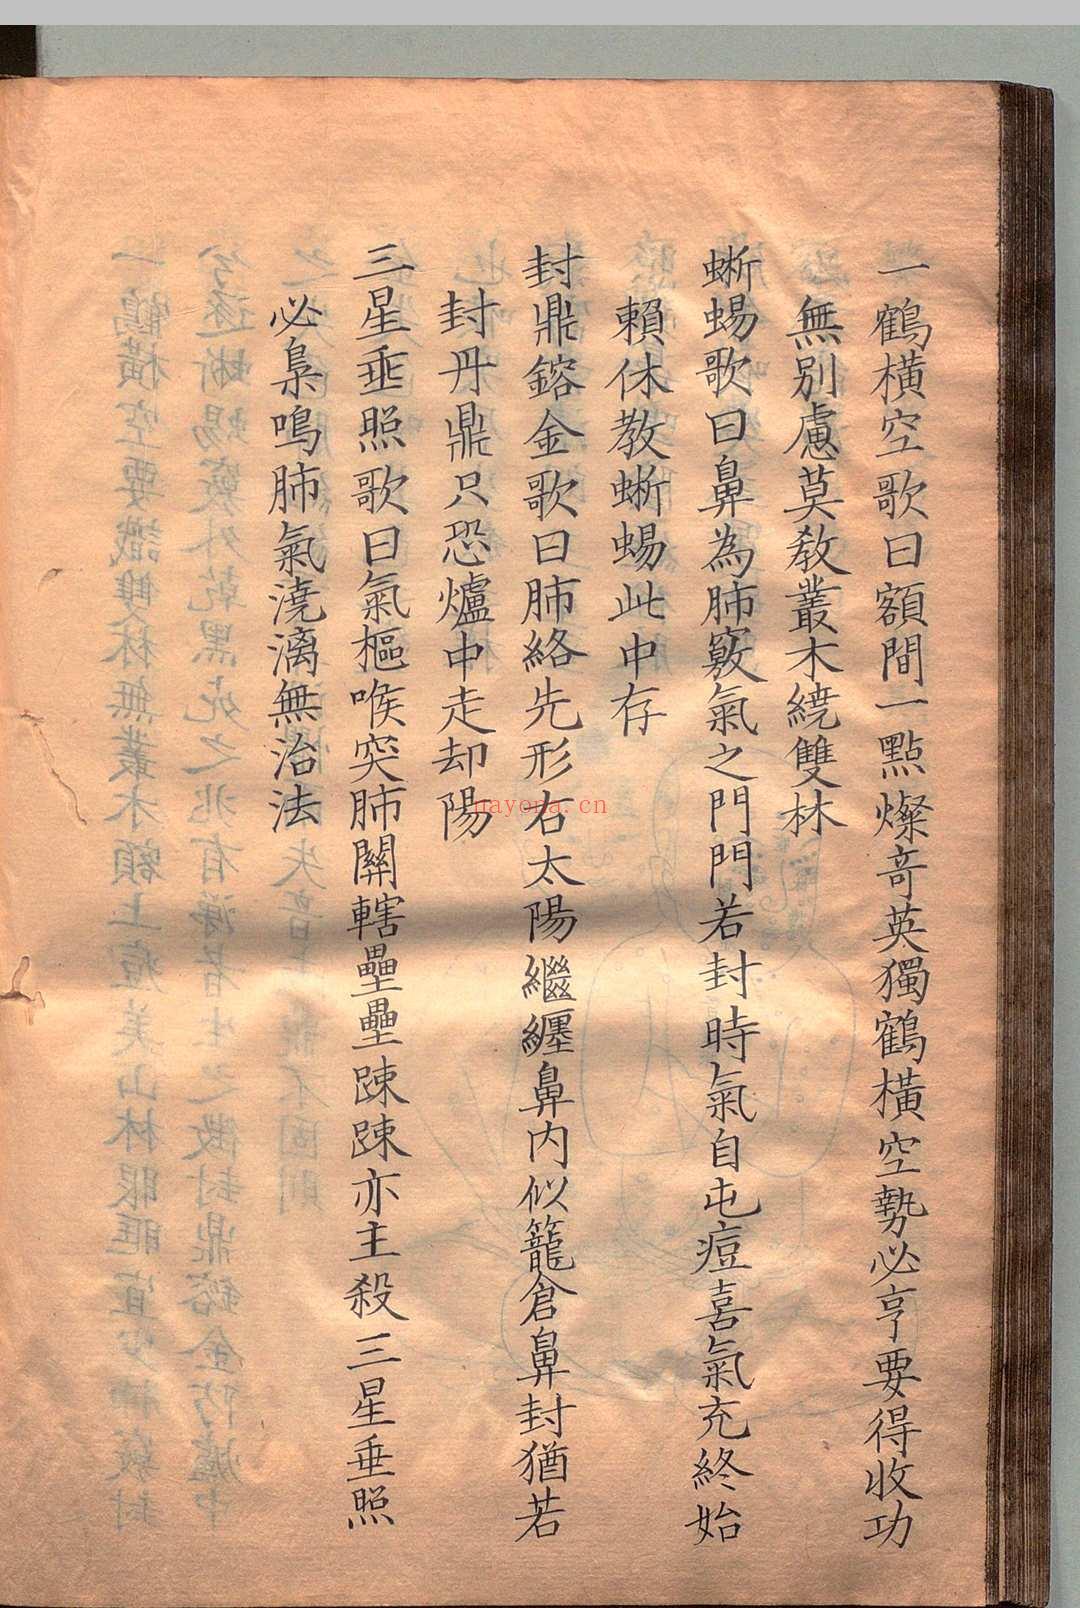 一鶴横空歌曰額間一點燦奇英獨鶴横空勢必亨要得收功
無别慮莫教叢木繞雙林
蜥蜴歌曰鼻為肺竅氣之門門若封時氣自屯痘喜氣充終始
賴休教蜥蜴此中存
封鼎鎔金歌曰肺絡先形右太陽繼纏鼻内似籠倉鼻封猶若
封丹鼎只恐爐中走却陽
三星垂照歌曰氣樞喉突肺關轄壘壘踈踈亦主殺三星垂照
必梟鳴肺氣澆漓無治法
nayona.cn